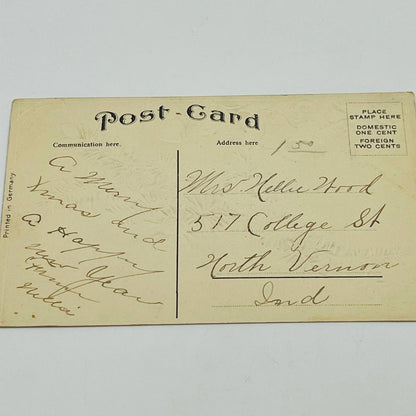 Post-Card
PLACE
STAMP HERE
DOMESTIC
ONE CENT
FOREIGN
TWO CENTS
Communication here.
Address here
1 50
Printed in Germany
A Merry
Xmas and
A Happy
New Year
From
Mrs Nellie Wood
517 College St
North Vernon
Ind